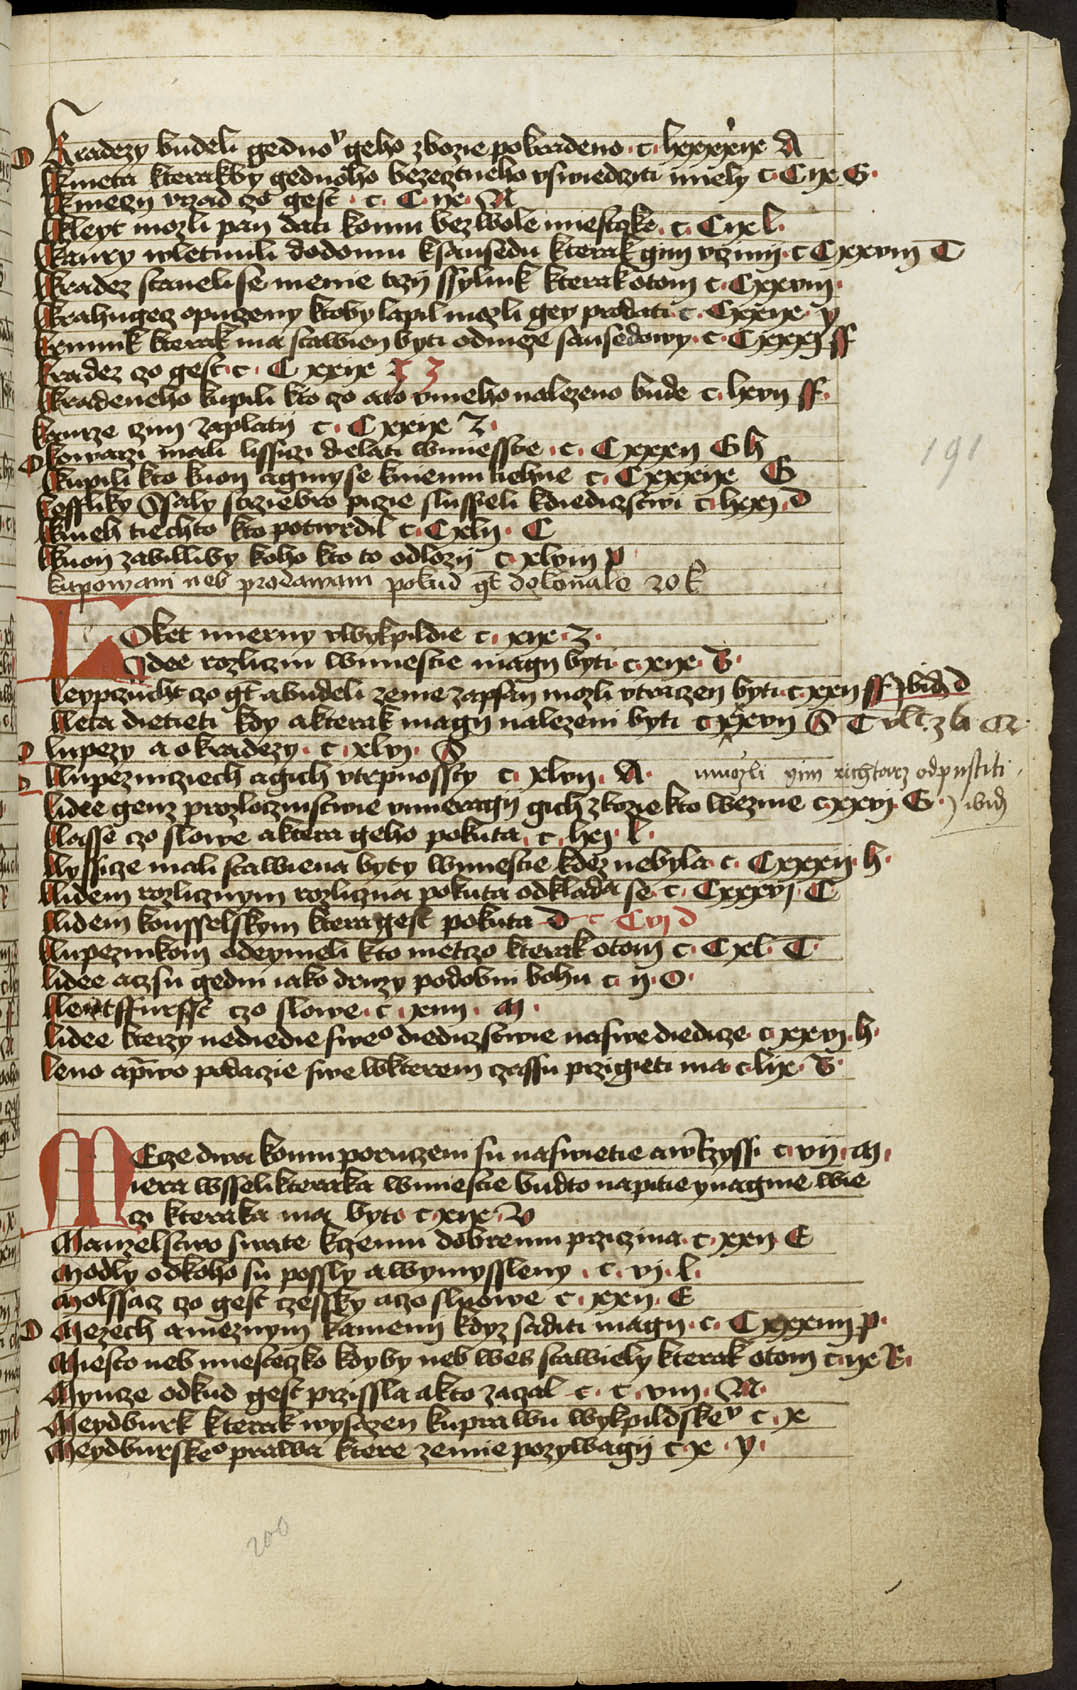 Kradezy budeli gednoͦ geho zbozie pokradeno c. lxxxix A
Kmeta kterakby gednoho bezecztneho vswiedcziti miely c. Cix G.
Kmeczy vrzad czo gest . c. C. ix. M
Kleyt mozli pan dati komu bez wole miesczke. c. Cix l.
Kaury wletinuli dodomu ksausedu kterak gim vcziniti c Cxxviij T
Kradez stanelise menie trzij ssylink kterak otom c. Cxxviij.
Krahugecz opuczeny ktoby lapil mozli gey prodati c. Cxxix. y
Krmnik kterak ma stawien byti od meze sausedowy. c. Cxxxj ff
Kradez czo gest c. C xxix X 3
Kradeneho kupili kto czo a to vnieho nalezeno bude c. lxvij ff.
Kaurze czim zaplatij c. Cxxix z.
Kowarzi mali lissiczi dielati wmiestie . c. Cxxxij G h
Kupili kto kuon a gmy se kniemu tiehne c. Cxxxix G
Kofliky Ssaly strziebro przie slussieli kdiediczstwi c. lxxj. d
Knieh tiechto kto potwrdil c. Cxlij. C
Kuon zabillby koho kto to odlozij c. xlviij p
kupowani neb prodawani pokud gt dokonale 20 k
LOket mierny vwykpildie c. xix. z.
Lidee rozliczni wmiestie magij byti c. xix. v.
Leypczucht czo gt a budeli zeme zapsan mozli vtraczen byti c. xxij ff ibid d
Leta dietieti kdy a kterak magij nalezeni byti c xxvij S C vlt. 36 m.
Lupezy a okradezy. c. xlvj. S
Lupezniczich a gich vtrpnossty c. xlvij. A. muozli gim richtarz odpustiti
Lidee genz przoloziustwie vmieragij gich zbozie kto wezme c. xxvj G. ibid
Lasse czo slowe a ktera geho pokuta. c. lxj. l.
Lyssicze mali stawiena byty wmiestie kdez nebyla c. Cxxxij. h.
Lidem rozlicznym rozliczna pokuta odklada se c. Cxxxvj C
Lidem konsselskym ktera gest pokuta d c Cvij d
Lupeznikom odeymeli kto nietczo kterak otom c. Cxl. C.
Lidee aczsu gedni iako druzy podobni bohu c. ij. o.
Lentffursst czo slowe. c. xiiij. m.
Lidee kterzy nediedie sweͦ diediczstwie na swe diedicze c. xxvj. h.
Leno a prawo podaczie swe wkterem czassu przigieti ma c. lix. v.
MEcze dwa komu poruczeni su na swietie a wrzyssi c. vij. m.
Miera wsselikteraka wmiestie budto na pitie y na gine wie
czi kteraka ma byto c. xix. v
Manzelstwo swate kczemu dobremu przicziua c. xxij E
Modly od koho su possly a wymyssleny . c. vj. l.
Molssacz czo gest czessky a czo sluowe c. xxij. E
Mezech a mieznym kameni kdyz saditi magij. c. Cxxxiiij p.
Miesto neb miesteczko kdyby neb wes stawiely kterak otom c. ix R.
Myncze odkud gest przissla a kto zaczal c. c. viij. M.
Meydburk kterak wysazen kuprawu wykpildskeͧ c. x
Meydburskeͦ prawa ktere zemie pozywagij c. x . y.
191
200